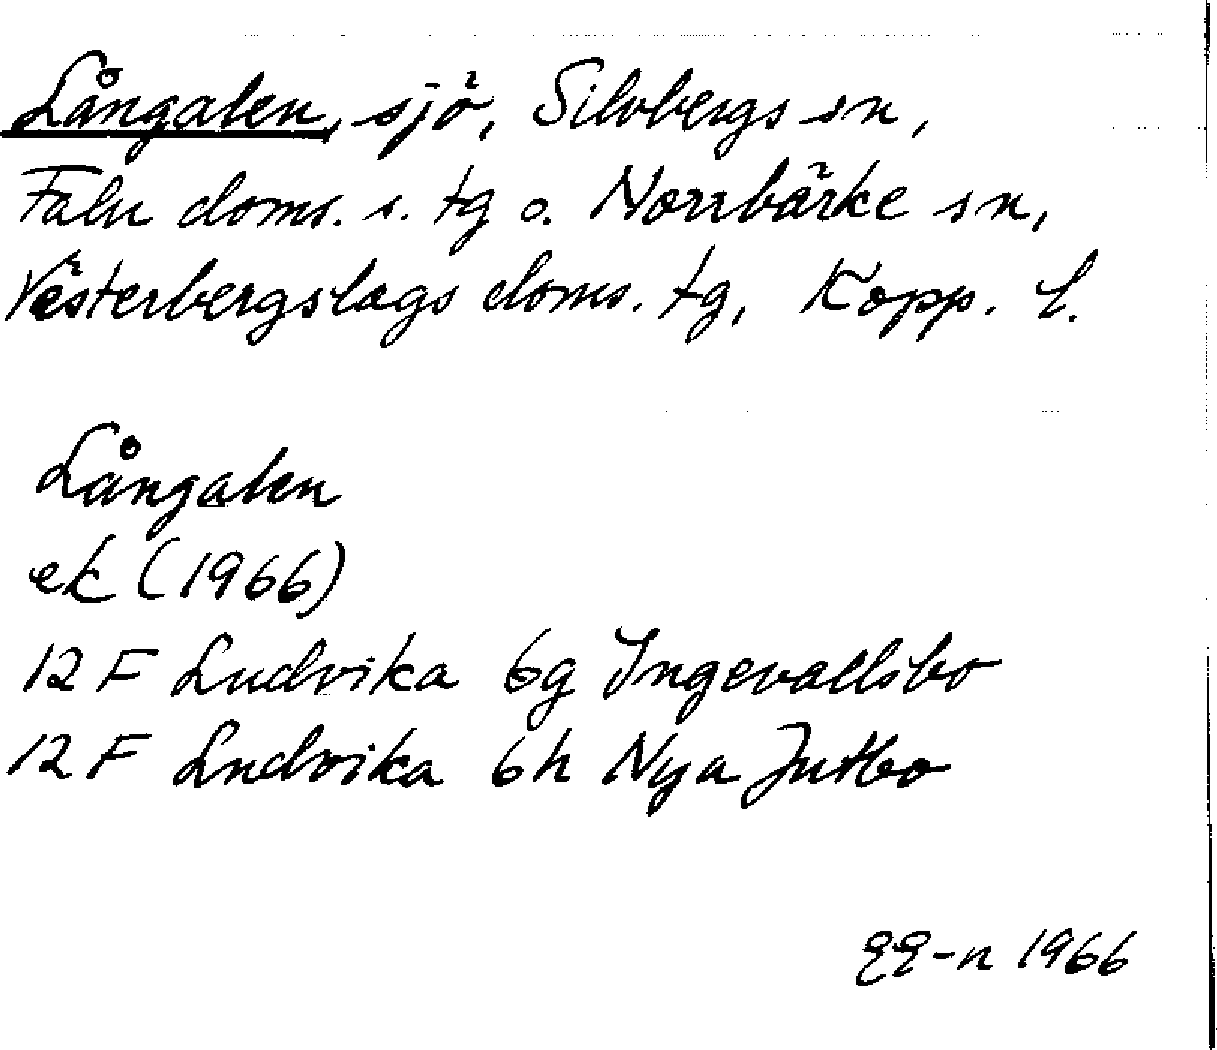 Långalen, sjö, Silvbergs sn,
Falu doms. s. tg o. Norrbärke sn,
Västerbergslags doms. tg, Kopp. l.
Långalen
ek (1966)
12 F Ludvika 6g Ingevallsbo
12 F Ludvika 6h Nya Jutbo
-n 1966